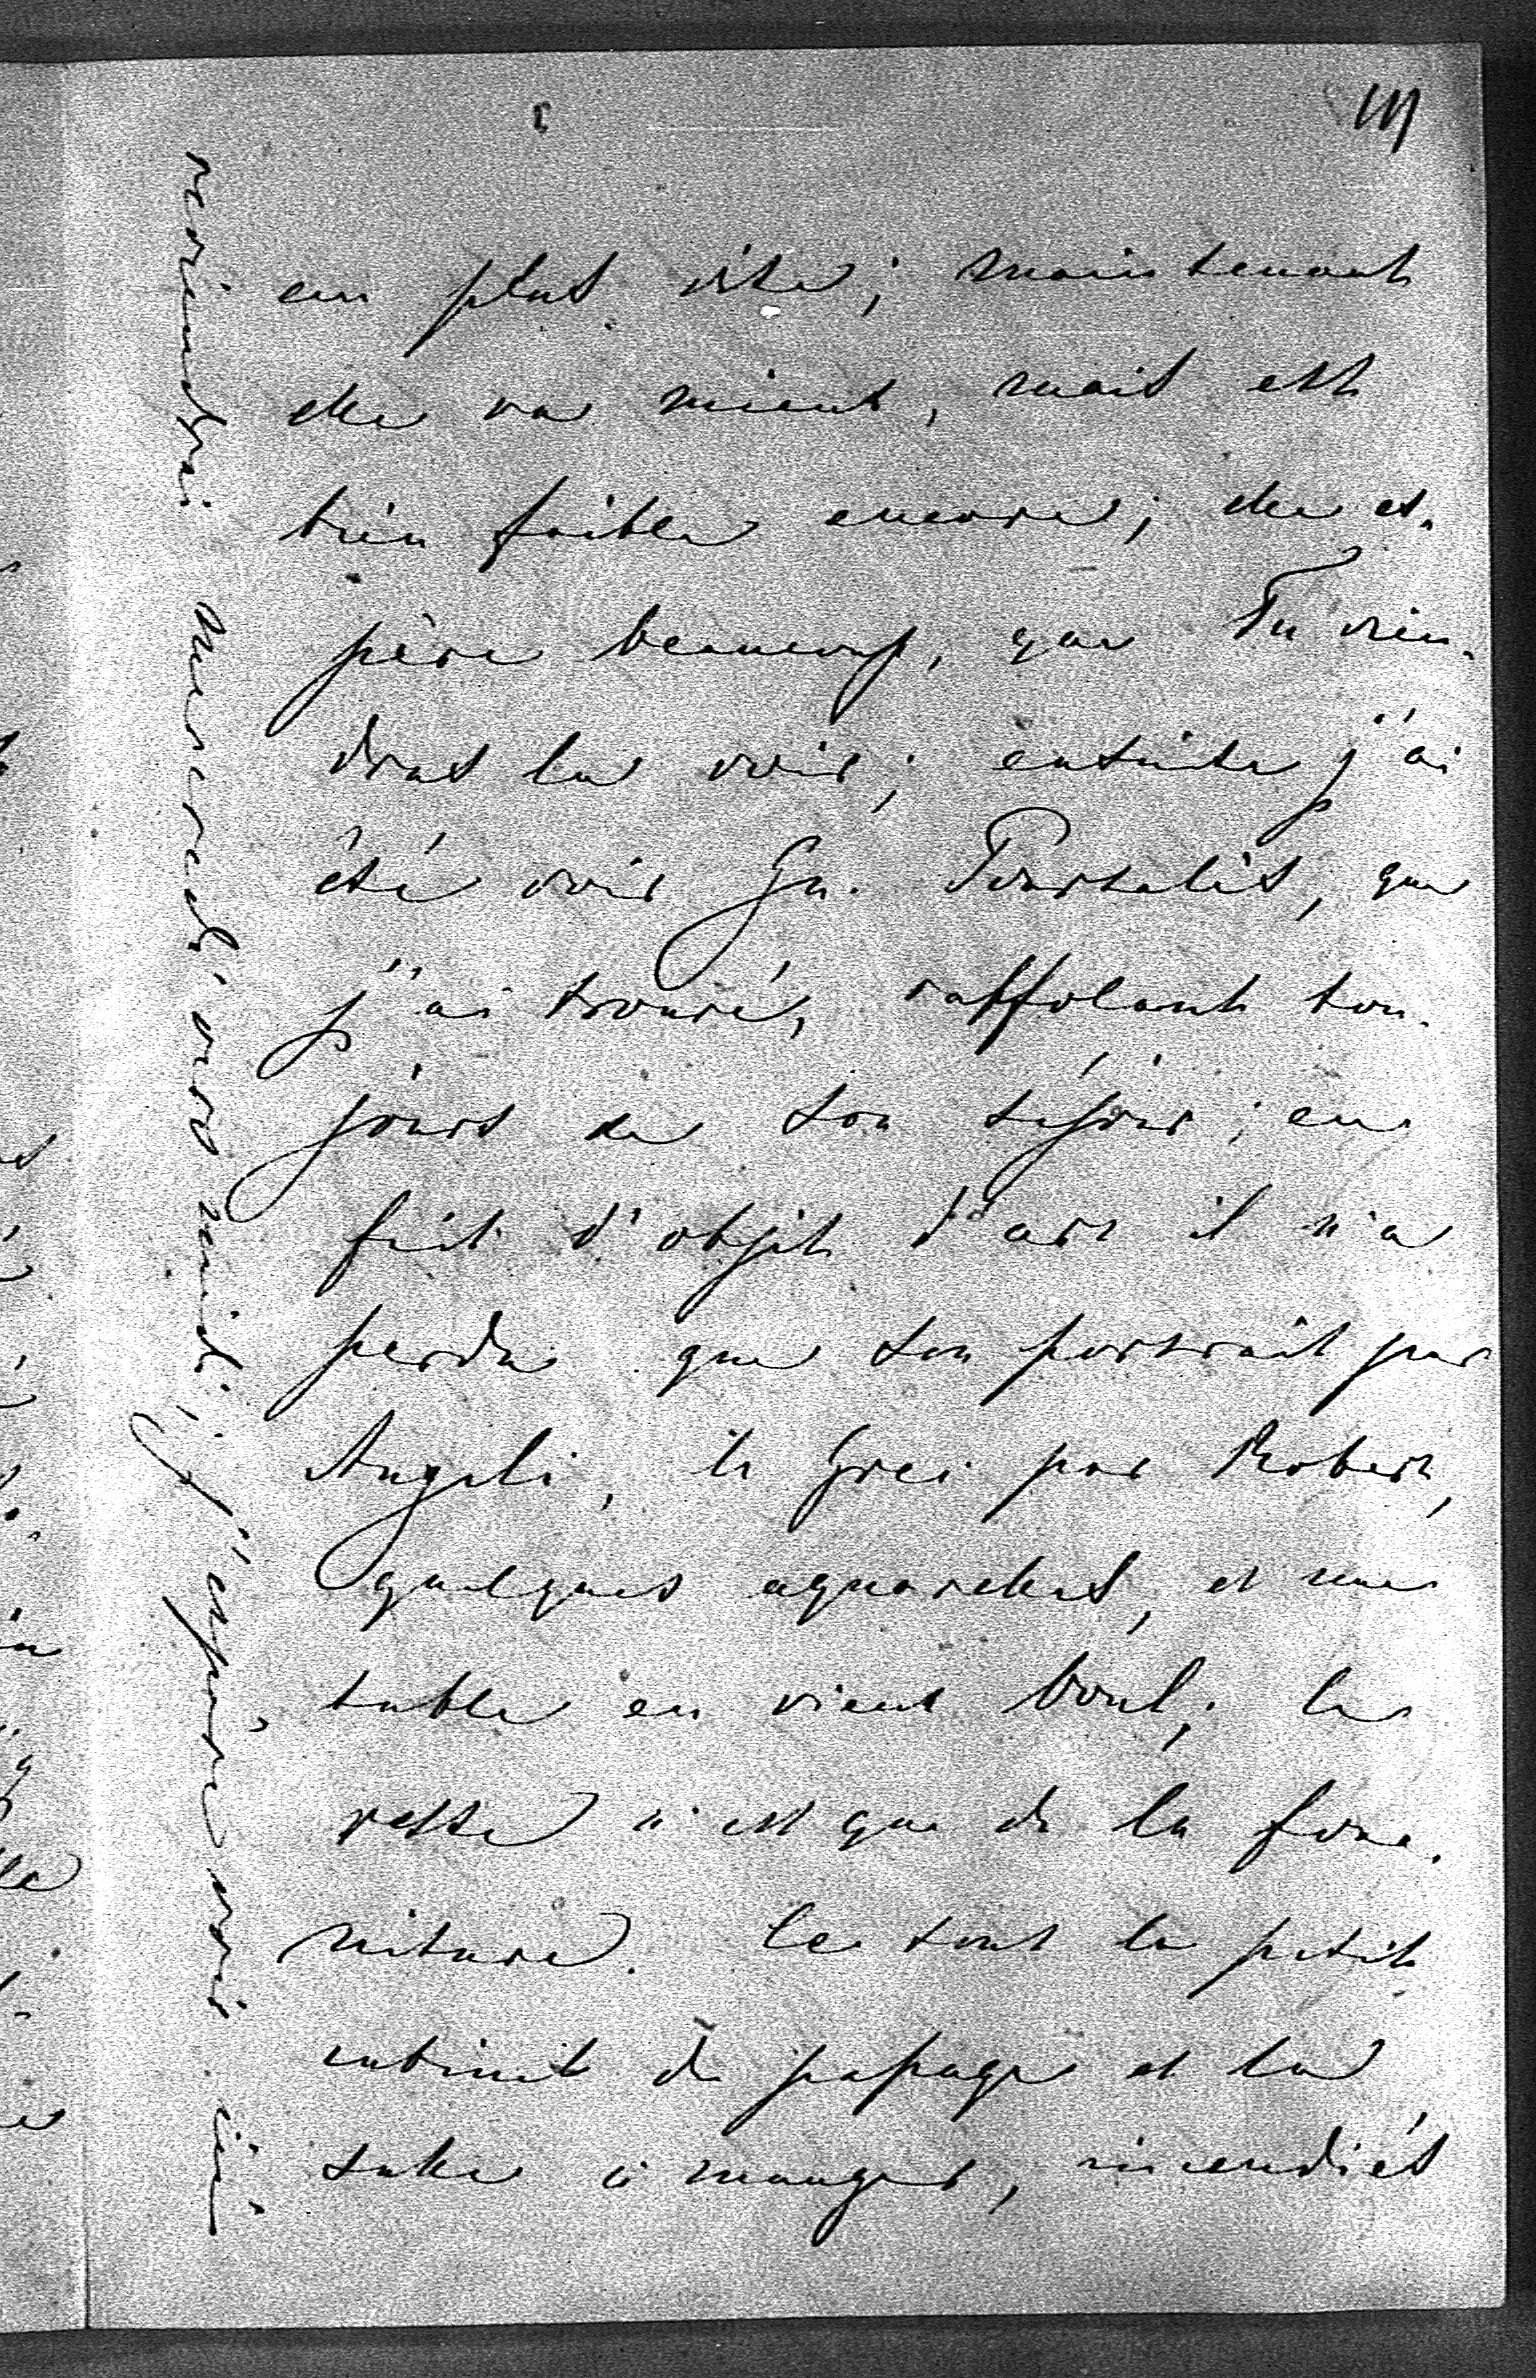 en plus vite; maintenant
elle va mieux, mais est
bien faible encore; elle es-
père beaucoup, que Tu vien-
dras la voir; ensuite j'ai
été voir Gu. Pourtalès, que
j'ai trouvé, raffolant tou-
jours de son séjour; en
fait d'objets d'art il n'a
perdu que son portrait par
Angeli, le Grec par Robert,
quelques aquarelles, et une
table en vieux boul; le
reste n'est que de la four-
niture. Ce sont le petit
cabinet de papage et la
salle à manger, incendiés
reviendrai mercredi vers midi; j'espère voir